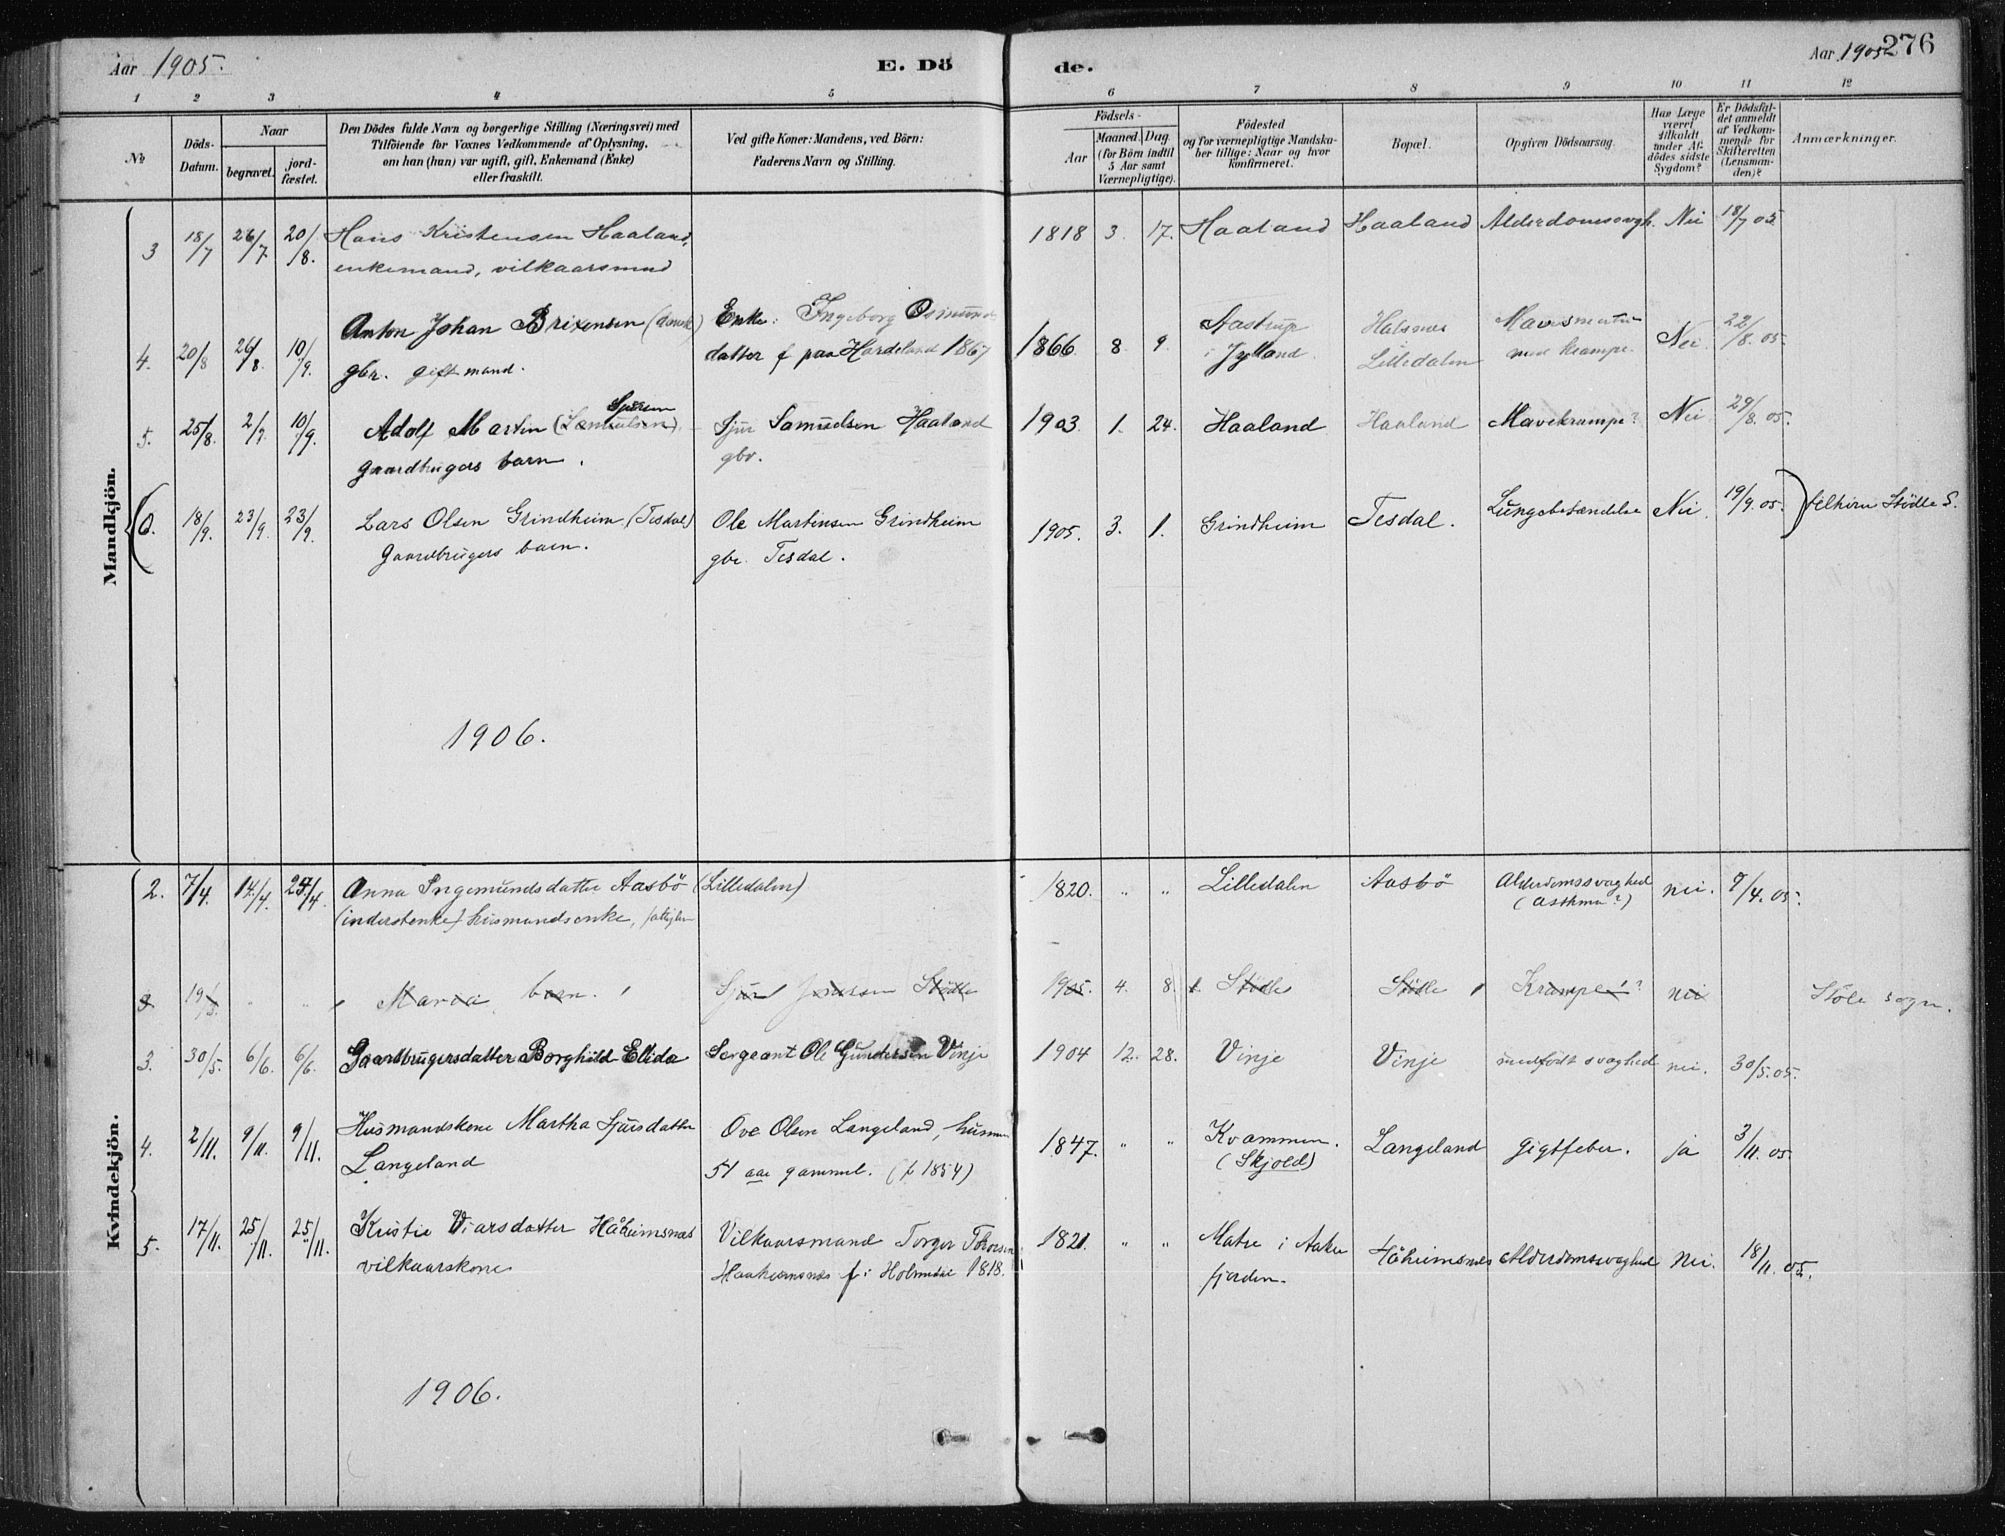 Aar 1905. E. Dö de. Aar 1905 276
1 2 3 4 5 6 7 8 9 10 11 12
No. Döds-Datum. Naar begravet. jord-fæstet. Den Dödes fulde Navn og borgerlige Stilling (Næringsvei) med Tilföiende for Voxnes Vedkommende af Oplysning, om han (hun) var ugift, gift, Enkemand (Enke) eller fraskilt. Ved gifte Koner: Mandens, ved Börn: Faderens Navn og Stilling. Födsels- Aar Maaned. Dag (for Börn indtil 5 Aar samt Værnepligtige). Födested og for værnepligtige Mandskaber tillige: Naar og hvor konfirmeret. Bopæl. Opgiven Dödsaarsag. Har Læge været tilkaldt under Afdödes sidste Sygdom? Er Dödsfaldet anmeldt af Vedkommende for Skifteretten (Lensmanden)? Anmærkninger.
Mandkjön.
3 18/7 26/7 20/8. Hans Kristensen Haaland, 1818 3. 17. Haaland Haaland Alderdomssvagh. Nei 18/7 05.
enkemand, vilkaarsmand
4. 20/8 26/8. 10/9. Anton Johan Brixensen (dansk) Enke: Ingeborg Osmund 1866 8 9. Aastrup Halsnes Nei 22/8. 05.
gbr. gift mand. datter f paa Hardeland 1867 i Jylland. Lilledalen med krampe.
5. 25/8. 2/9. 10/9. Adolf Martin (Samuelsen) Sjursen Sjur Samuelsen Haaland 1903 1. 24. Haaland Haaland Mavekrampe? Nei 29/8. 05.
gaardbrugers barn. gbr.
(6. 18/9. 23/9. 23/9. Lars Olsen Grindheim (Tesdal) Ole Martinsen Grindheim 1905. 3. 1. Grindheim Tesdal. Lungebetændelse Nei. 19/9. 05. Stödle S.
Gaardbrugers barn. gbr. Tesdal.
1906.
Kvindekjön.
2. 7/4. 14/4. 24/4 Anna Ingemundsdatter Aasbö (Lilledalen) 1820. " " Lilledalen Aasbö Alderdomssvaghed nei. 8/4. 05.
(inderstenke) husmandsenke, (Asthma?)
3 19/5. " " Maria barn. Sjur Stödle 1905. 4. 8. Stödle Stödle Krampe? nei Stöle sogn.
3. 30/5. 6/6. 6/6. Gaardbrugersdatter Borghild Elida Sergeant Ole Gundersen Vinje 1904 12. 28. Vinje Vinje medfödt svaghed nei. 30/5. 05.
4. 2/11. 9/11. 9/11. Husmandskone Martha Sjursdatter Ove Olsen Langeland, husm 1847. " " Kvammen. Langeland Gigtfeber. ja 3/11. 05.
Langeland 51 aar gammel. (f 1854) (Skjold)
5. 17/11. 25/11. 25/11. Kristie Viarsdatter Håheimsnes Vilkaarsmand Torger Thoresen 1821. " " Matre i Aake Håheimsnes Alderdomssvaghed Nei. 18/11. 05.
vilkaarskone Haaheimsnes f. i Holmedal 1818. fjorden.
1906.